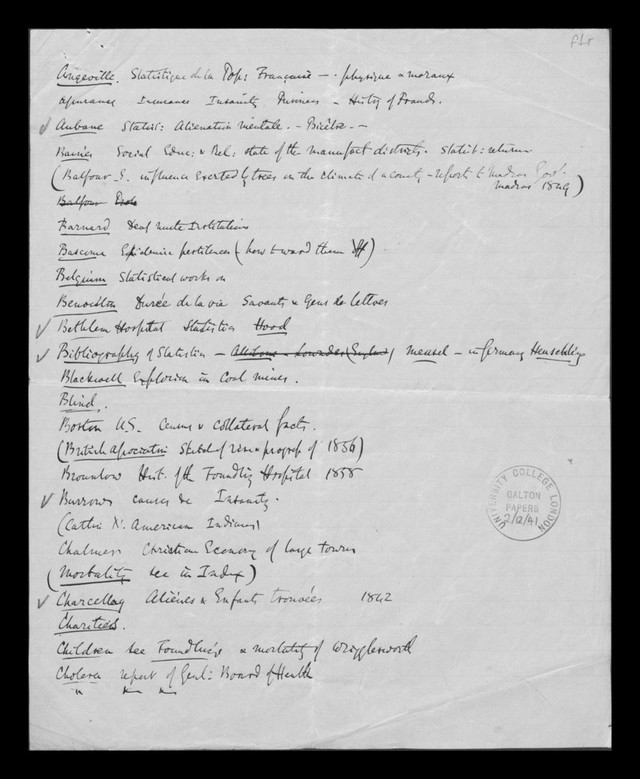 Angeville. Statistique de la Pop: Française — physique & moraux
Assurance Insurance Insanity Prisoners – History of Frauds.
Aubane Statist: Alienation mentale. – Bicêtre. –
Baines Social Educ: & Rel: state of the manufact districts. Statist: return
(Balfour E. influence exerted by trees on the climate of a country – reports to Madras Govt.
Madras 1849)
Balfour
Barnard Deaf mute Institutions
Bascome Epidemic pestilences (how to ward them off)
Belgium Statistical works on
Benoiston Durée de la vie Savants & Gens de lettres
Bethlem Hospital Statistics Hood
Bibliography of Statistics – Allibone & Lowndes (England) Meusel – in Germany Heuschling
Blackwell Explosion in Coal mines.
Blind.
Boston U.S. Census & collateral facts.
(British Association Sketch of rise & progress of 1856)
Brownlow Hist. of the Foundling Hospital 1858
Burrows causes &c Insanity.
(Catlin N. American Indians)
Chalmers Christian Economy of large towns
(Mortality see in Index)
Charcellay Aliénés & Enfants trouvées 1842
Charities.
Children see Foundlings & mortality of Wrigglesworth
Cholera report of Genl: Board of Health
UNIVERSITY COLLEGE LONDON
GALTON
PAPERS
2/12/41